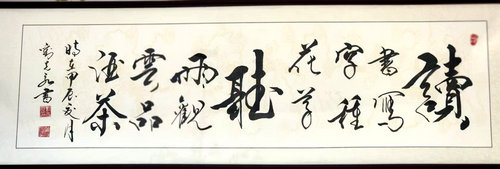 讀
書寫
字種
花草
聽
雨觀
雲品
酒茶
時在甲辰月
書